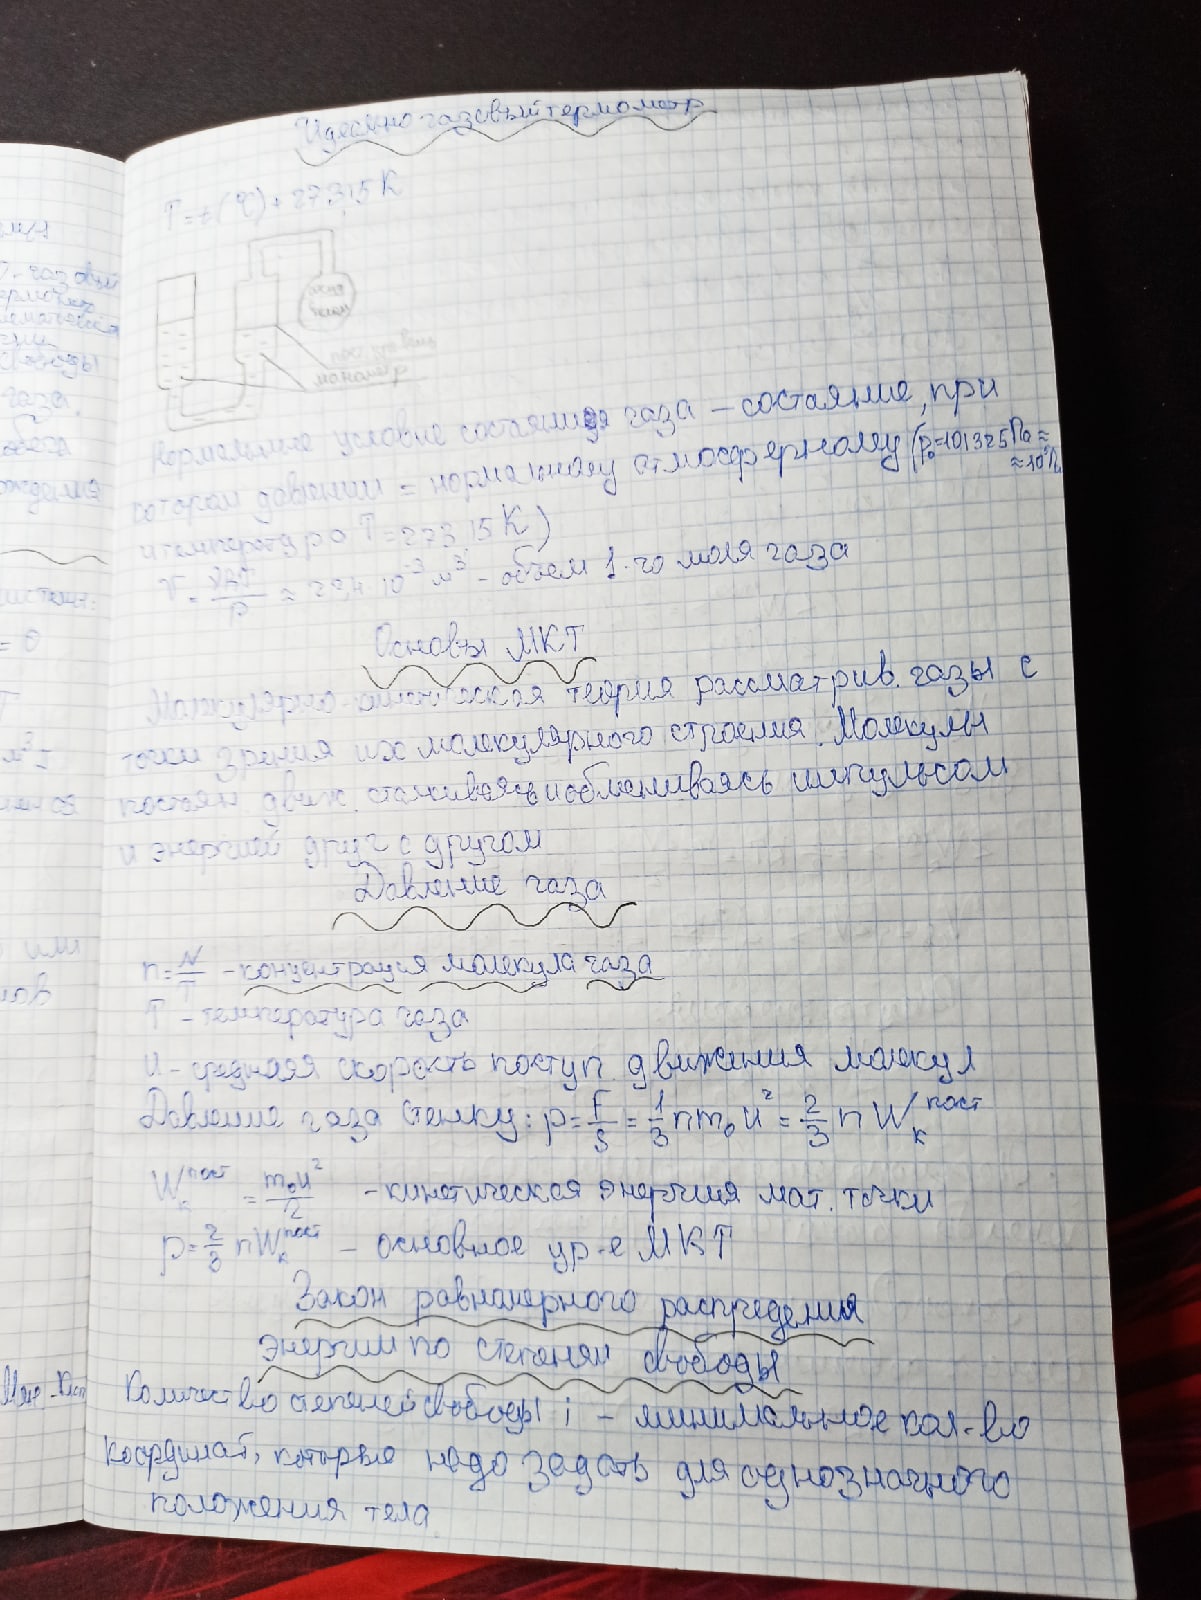 Идеально газовый термометр
T = t(°C) + 273,15 K
манометр
Нормальные условие состояния газа – состояние, при
котором давлении = нормальному атмосферному (p₀=101325 Па ≈
≈ 10⁵ Па
и температура T = 273,15 K)
V = νRT/p ≈ 22,4·10⁻³ м³ – объем 1-го моля газа
Основы МКТ
Молекулярно-кинетическая теория рассматрив. газы с
точки зрения их молекулярного строения. Молекулы
постоян. движ. сталкиваясь и обмениваясь импульсом
и энергией друг с другом
Давление газа
n = N/T – концентрация молекула газа
T – температура газа
u – средняя скорость поступ. движения молекул
Давление газа стенку: p = F/S = 1/3 n m₀ u² = 2/3 n Wₖ пост
Wₖ пост = m₀u²/2 – кинетическая энергия мат. точки
p = 2/3 n Wₖ пост – основное ур-е МКТ
Закон равномерного распредения
энергии по степеням свободы
Количество степеней свободы i – минимальное кол-во
координат, которые надо задать для однозначного
положения тела.